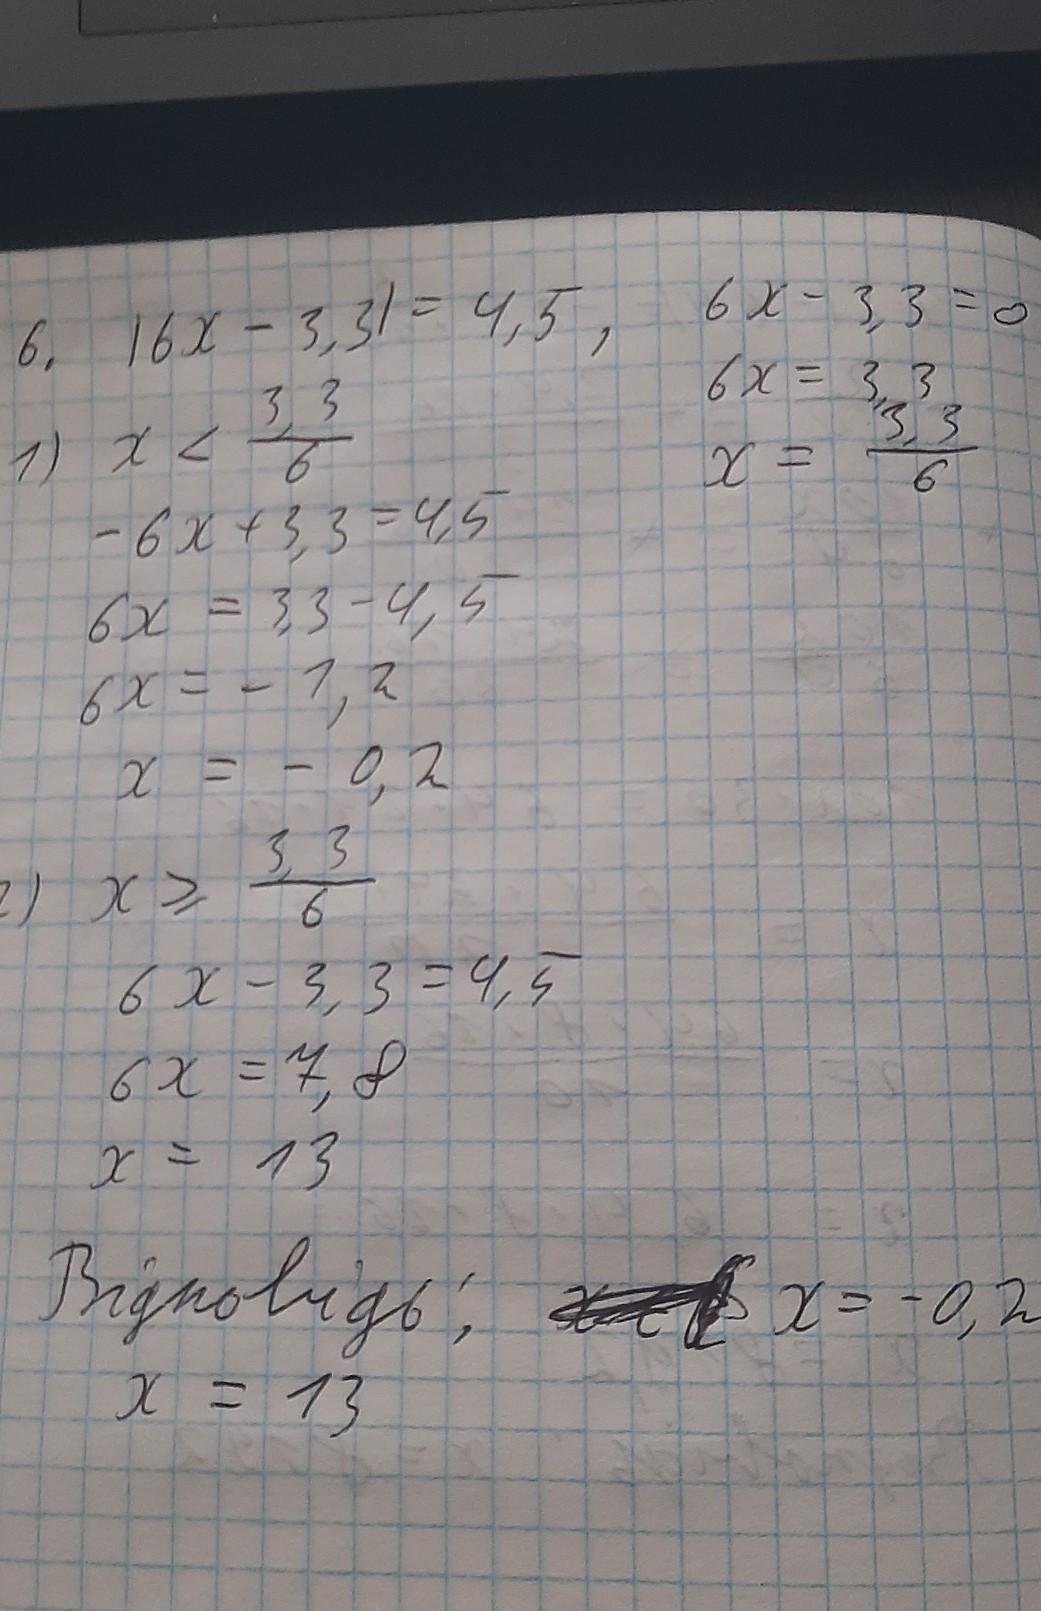 6. |6x - 3,3| = 4,5,
6x - 3,3 = 0
6x = 3,3
x = 3,3/6
1) x < 3,3/6
-6x + 3,3 = 4,5
6x = 3,3 - 4,5
6x = - 1,2
x = - 0,2
2) x ⩾ 3,3/6
6x - 3,3 = 4,5
6x = 7,8
x = 13
Відповідь; x = -0,2
x = 13